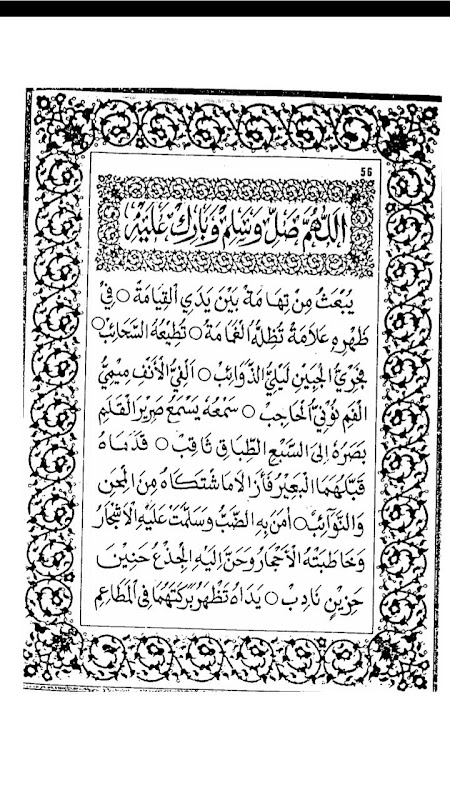 56
اللهم صل وسلم وبارك عليه
يُبْعَثُ مِنْ تِهَامَةَ بَيْنَ يَدَيِ الْقِيَامَةِ ○ فِي
ظَهْرِهِ عَلَامَةٌ تُظِلُّهُ الْغَمَامَةُ ○ تُطِيْعُهُ السَّحَائِبُ ○
فَجْرِيُّ الْجَبِيْنِ لَيْلِيُّ الذَّوَائِبِ ○ اَلْفِيُّ الْأَنْفِ مِيْمِيُّ
الْفَمِ نُوْنِيُّ الْحَاجِبِ ○ سَمْعُهُ يَسْمَعُ صَرِيْرَ الْقَلَمِ
بَصَرُهُ إِلَى السَّبْعِ الطِّبَاقِ ثَاقِبٌ ○ قَدَمَاهُ
قَبَّلَهُمَا الْبَعِيْرُ فَأَزَالَا مَا شْتَكَاهُ مِنَ الْمِحَنِ
وَالنَّوَآئِبِ ○ اٰمَنَ بِهِ الضَّبُّ وَسَلَّمَتْ عَلَيْهِ الْأَشْجَارُ
وَخَاطَبَتْهُ الْأَحْجَارُ وَحَنَّ إِلَيْهِ الْجِذْعُ حَنِيْنَ
حَزِيْنٍ نَادِبٍ ○ يَدَاهُ تَظْهَرُ بَرَكَتُهُمَا فِى الْمَطَاعِمِ